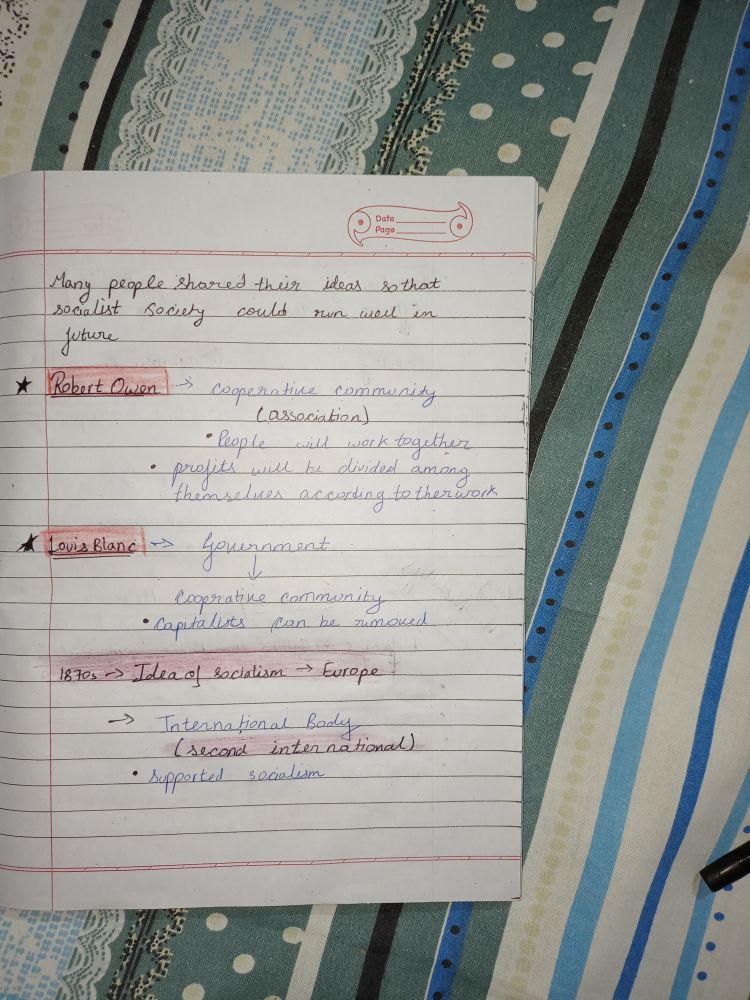 Date
Page
Many people shared their ideas so that
socialist society could run well in
future
★ Robert Owen → cooperative community
(association)
• People will work together
• profits will be divided among
themselves according to their work
★ Louis Blanc → Government
↓
cooprative community
• capitalists can be rimoved
1870s → Idea of socialism → Europe
→ International Body
(second international)
• supported socialism